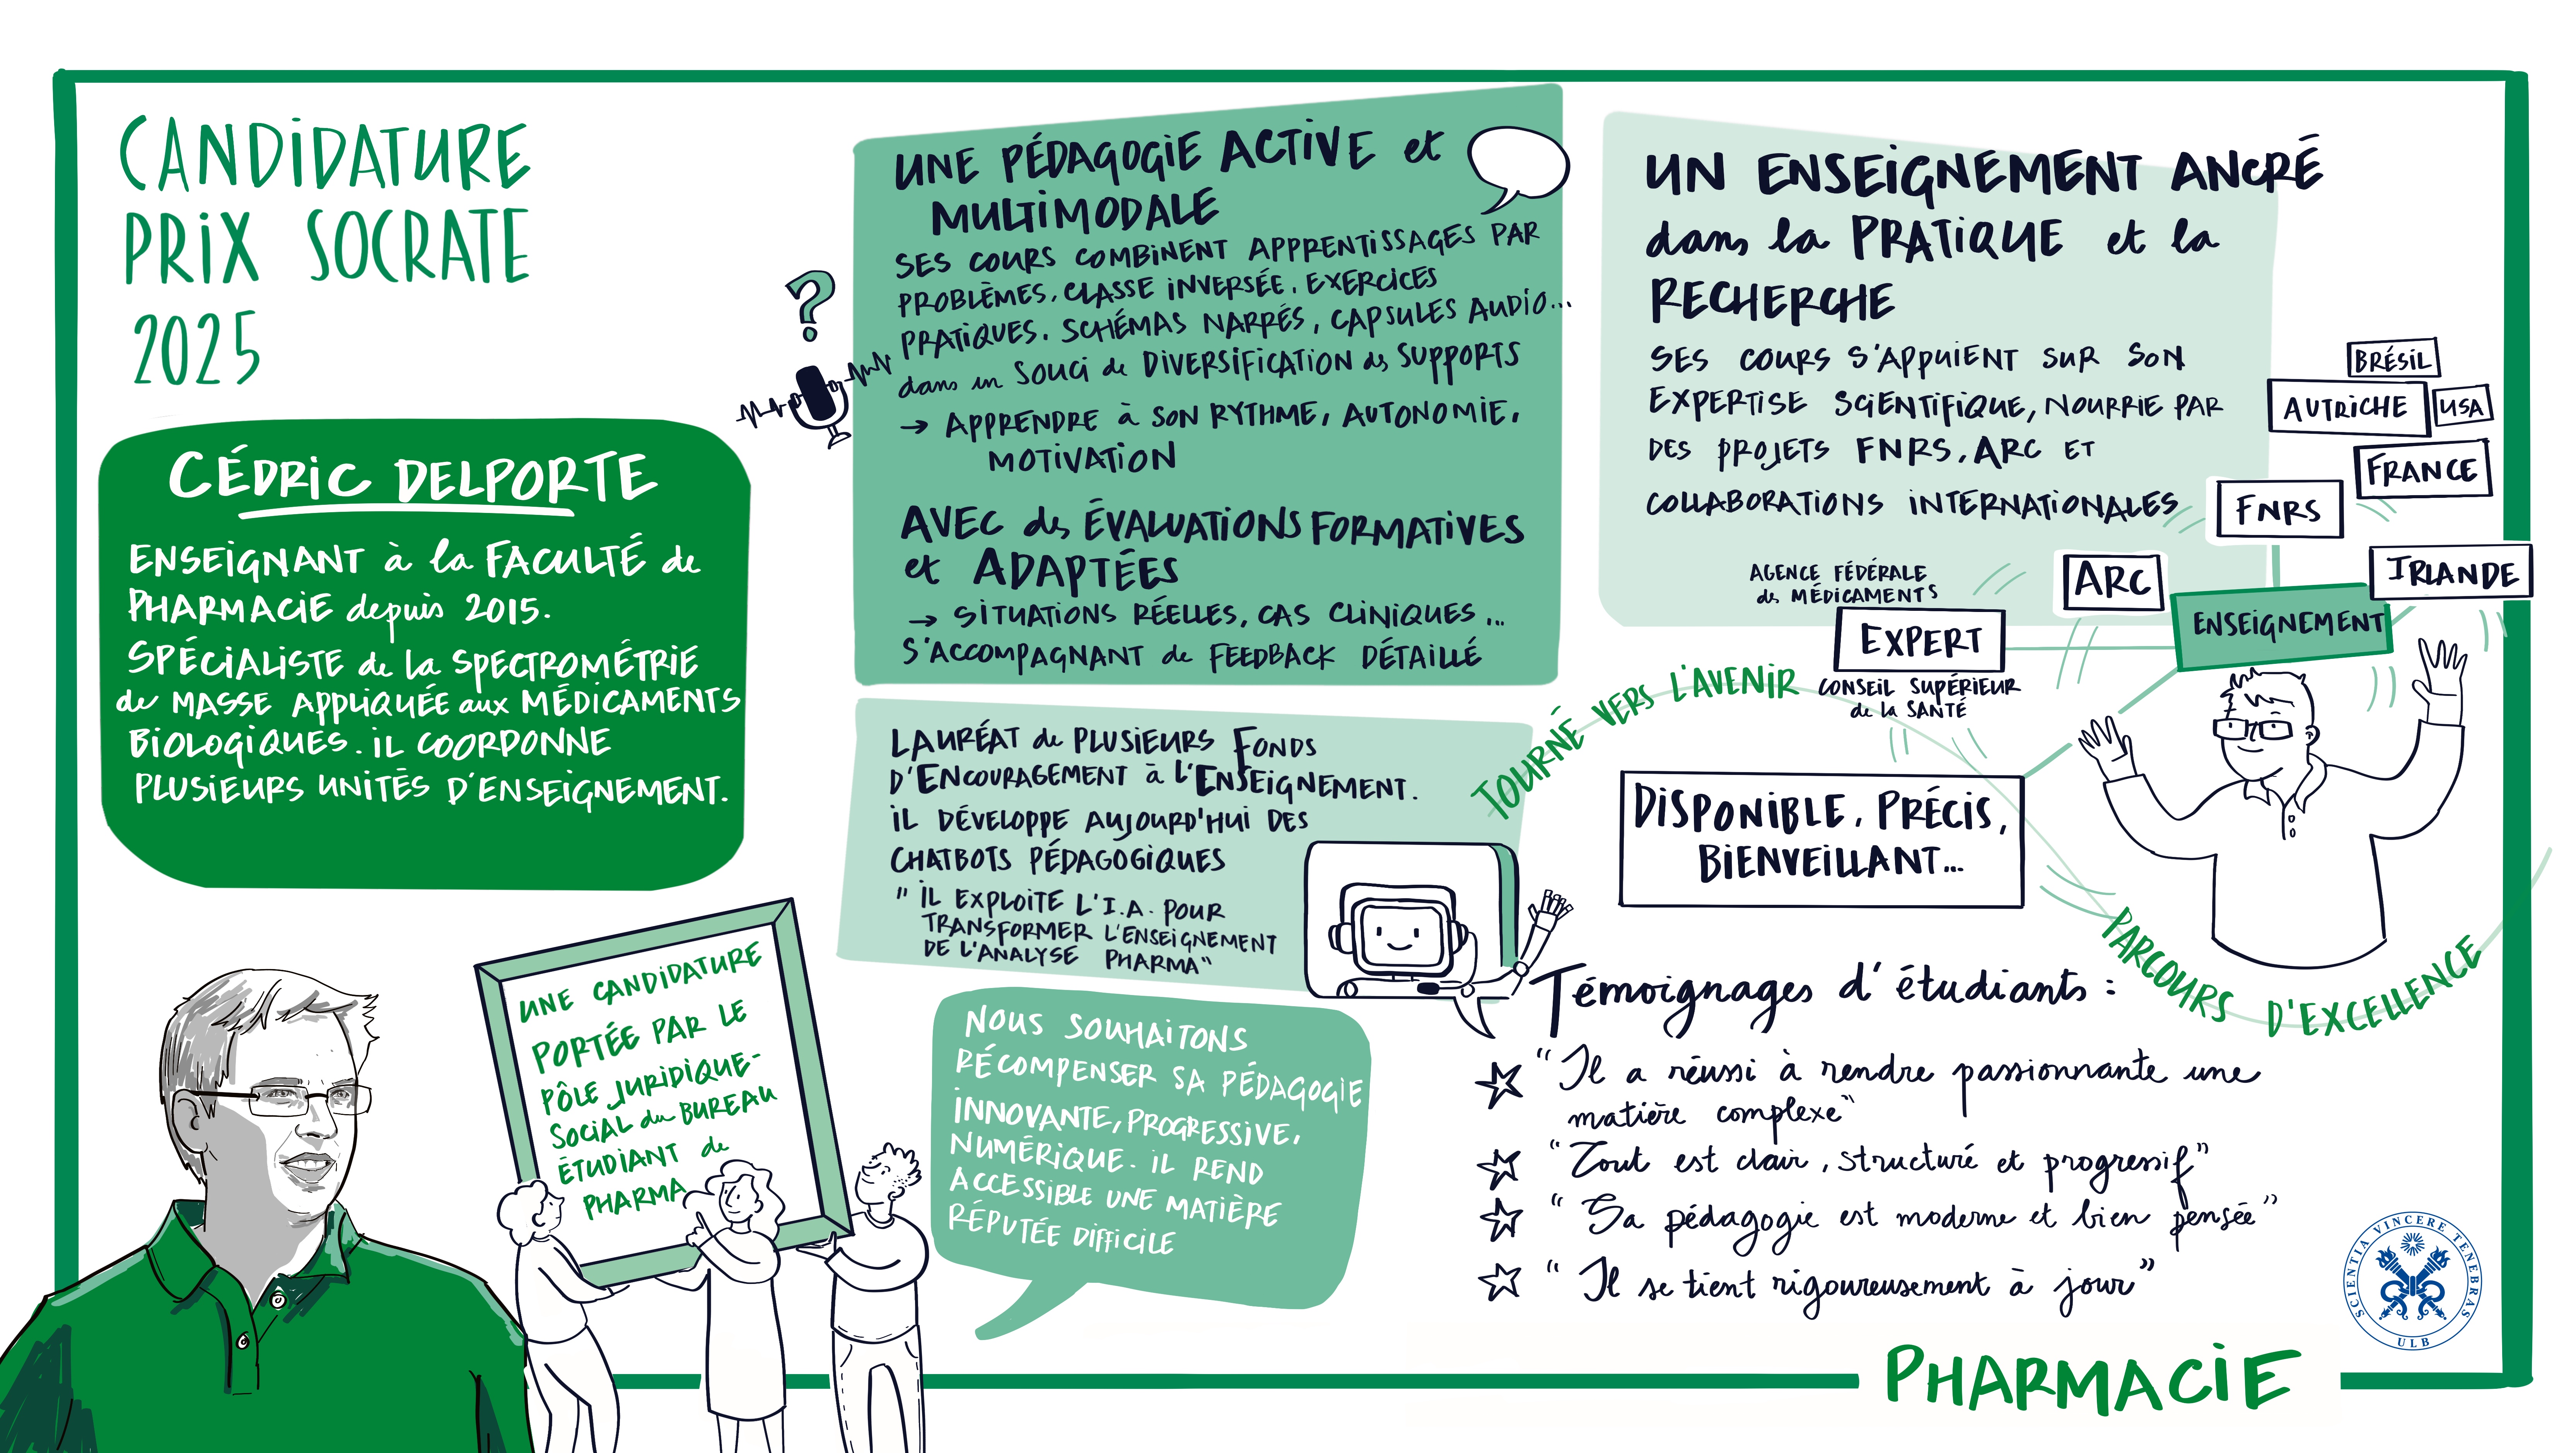 CANDIDATURE
PRIX SOCRATE
2025
CÉDRIC DELPORTE
ENSEIGNANT à la FACULTÉ de
PHARMACIE depuis 2015.
SPÉCIALISTE de la SPECTROMÉTRIE
de MASSE APPLIQUÉE aux MÉDICAMENTS
BIOLOGIQUES. IL COORDONNE
PLUSIEURS UNITÉS D'ENSEIGNEMENT.
UNE CANDIDATURE
PORTÉE PAR LE
PÔLE JURIDIQUE-
SOCIAL du BUREAU
ÉTUDIANT de
PHARMA
?
UNE PÉDAGOGIE ACTIVE et
MULTIMODALE
SES COURS COMBINENT APPRENTISSAGES PAR
PROBLÈMES, CLASSE INVERSÉE, EXERCICES
PRATIQUES, SCHÉMAS NARRÉS, CAPSULES AUDIO...
dans un SOUCI de DIVERSIFICATION des SUPPORTS
→ APPRENDRE à SON RYTHME, AUTONOMIE,
MOTIVATION
AVEC des ÉVALUATIONS FORMATIVES
et ADAPTÉES
→ SITUATIONS RÉELLES, CAS CLINIQUES...
S'ACCOMPAGNANT de FEEDBACK DÉTAILLÉ
LAURÉAT de PLUSIEURS FONDS
D'ENCOURAGEMENT à L'ENSEIGNEMENT.
IL DÉVELOPPE AUJOURD'HUI DES
CHATBOTS PÉDAGOGIQUES
" IL EXPLOITE L'I.A. POUR
TRANSFORMER L'ENSEIGNEMENT
DE L'ANALYSE PHARMA"
NOUS SOUHAITONS
RÉCOMPENSER SA PÉDAGOGIE
INNOVANTE, PROGRESSIVE,
NUMÉRIQUE. IL REND
ACCESSIBLE UNE MATIÈRE
RÉPUTÉE DIFFICILE
UN ENSEIGNEMENT ANCRÉ
dans la PRATIQUE et la
RECHERCHE
SES COURS S'APPUIENT SUR SON
EXPERTISE SCIENTIFIQUE, NOURRIE PAR
DES PROJETS FNRS, ARC ET
COLLABORATIONS INTERNATIONALES
BRÉSIL
AUTRICHE
USA
FRANCE
FNRS
IRLANDE
ARC
ENSEIGNEMENT
AGENCE FÉDÉRALE
des MÉDICAMENTS
EXPERT
CONSEIL SUPÉRIEUR
de la SANTÉ
TOURNÉ VERS L'AVENIR
DISPONIBLE, PRÉCIS,
BIENVEILLANT...
PARCOURS D'EXCELLENCE
Témoignages d'étudiants :
"Il a réussi à rendre passionnante une
matière complexe"
"Tout est clair, structuré et progressif"
"Sa pédagogie est moderne et bien pensée"
"Il se tient rigoureusement à jour"
SCIENTIA VINCERE TENEBRAS
ULB
PHARMACIE